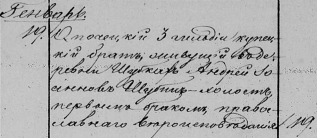 Генварь
19. Опочецкій 3 гильдіи купец-
кій братъ, живущій въ де-
ревнѣ Шуткахъ Андрей Іо-
анновъ, холостъ,
первымъ бракомъ, право-
славнаго вѣроисповѣданія 19.